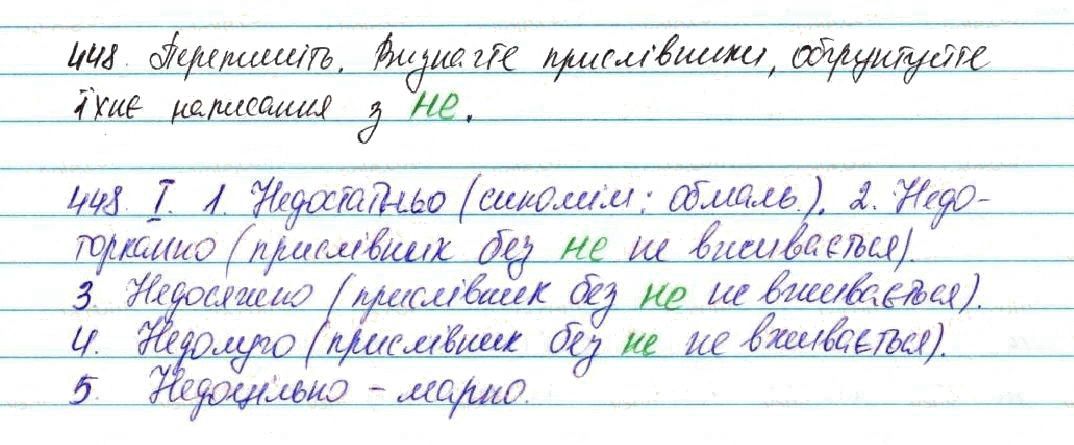 448. Перепишіть. Визначте прислівники, обґрунтуйте
їхнє написання з не.
448. I. 1. Недостатньо (синонім: обмаль). 2. Недо-
торканно (прислівник без не не вживається).
3. Недосяжно (прислівник без не не вживається).
4. Недолуго (прислівник без не не вживається).
5. Недоцільно – марно.